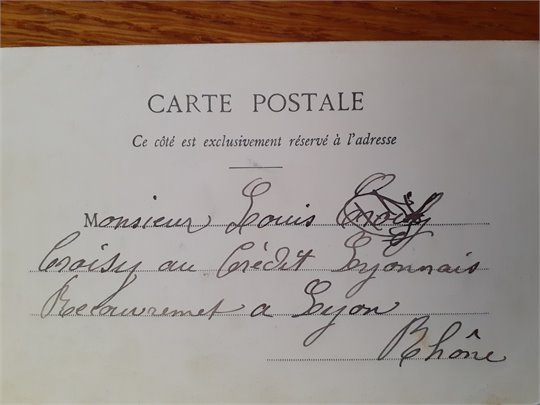 CARTE POSTALE
Ce côté est exclusivement réservé à l'adresse
Monsieur Louis
Croisy au Crédit Lyonnais
Recouvremet a Lyon
Rhône